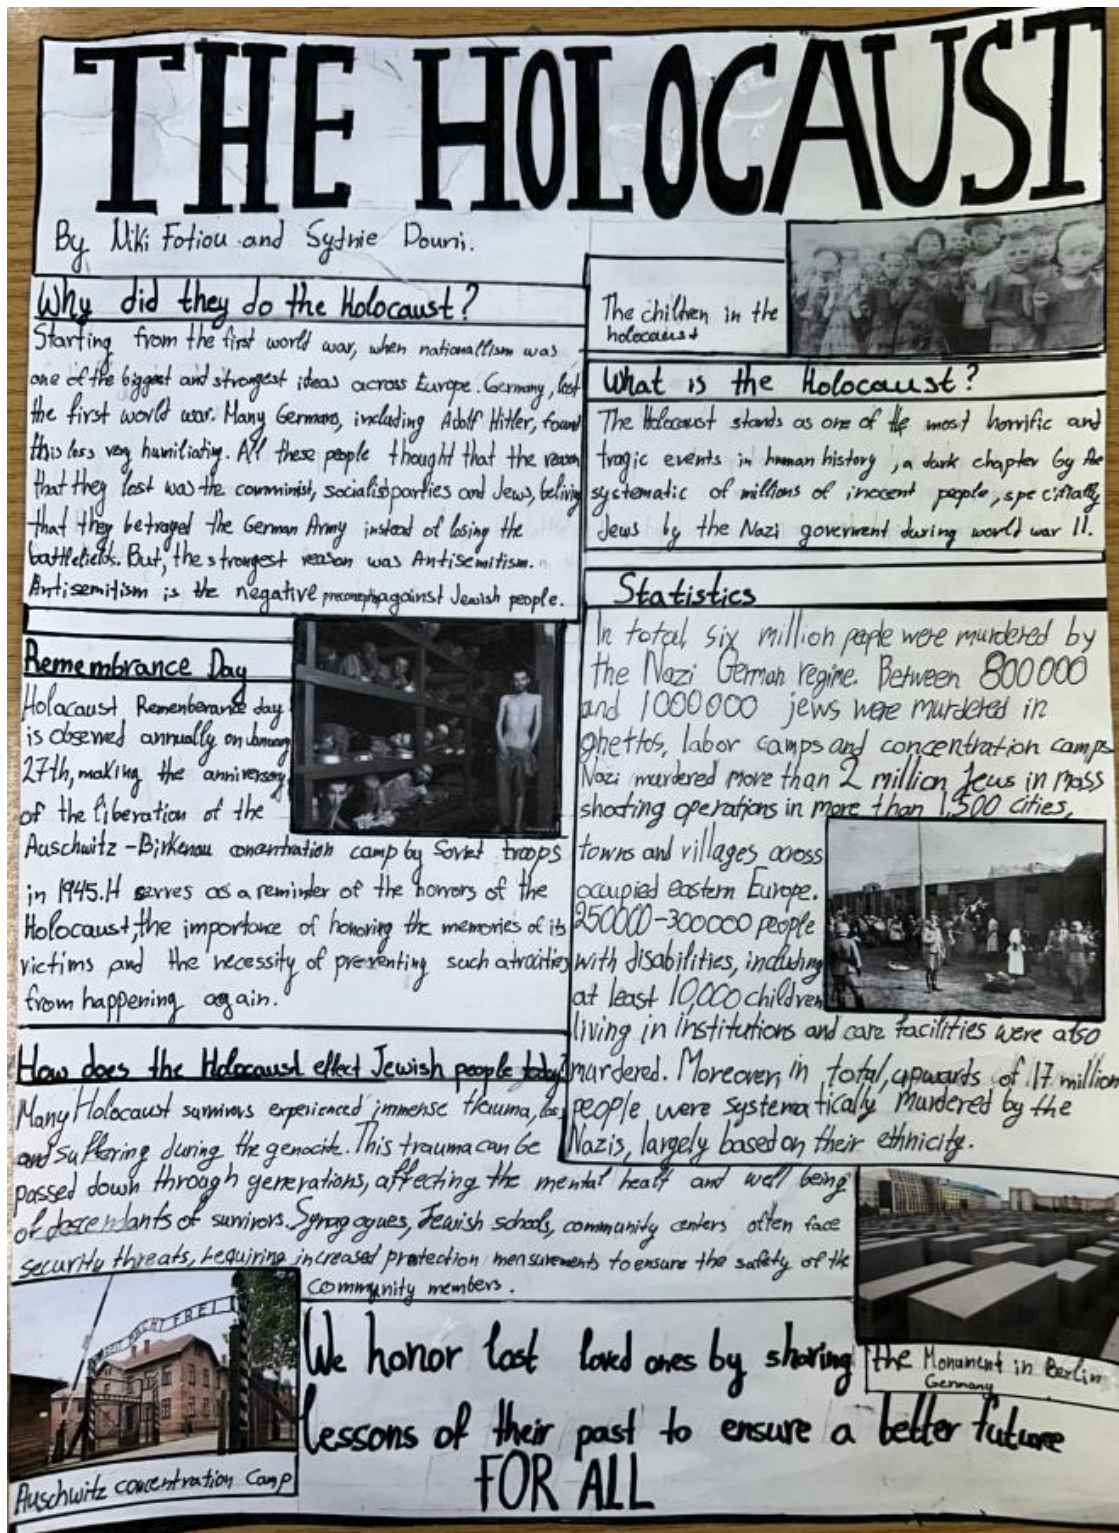 THE HOLOCAUST
By Niki Fotiou and Sydnie Douni.
Why did they do the Holocaust?
Starting from the first world war, when nationallism was
one of the biggest and strongest ideas across Europe. Germany, lost
the first world war. Many Germans, including Adolf Hitler, found
this loss very humiliating. All these people thought that the reason
that they lost was the communist, socialist parties and Jews, beliving
that they betrayed the German Army instead of losing the
battlefields. But, the strongest reason was Antisemitism.
Antisemitism is the negative against Jewish people.
Remembrance Day
Holacaust Rememberance day
is observed annually on January
27th, making the anniversary
of the liberation of the
Auschwitz-Birkenau concentration camp by Soviet troops
in 1945. It serves as a reminder of the horrors of the
Holocaust, the importance of honoring the memories of its
victims and the necessity of preventing such atrocities
from happening again.
How does the Holocaust effect Jewish people today?
Many Holocaust survivors experienced immense trauma, loss
and suffering during the genocite. This trauma can be
passed down through generations, affecting the mental healt and well being
of descendants of survivors. Synagogues, Jewish schools, community centers often face
security threats, requiring increased protection mensurements to ensure the safety of the
community members.
The children in the
holocaust
What is the Holocaust?
The Holocaust stands as one of the most horrific and
tragic events in human history, a dark chapter by the
systematic of millions of inocent people, specifially
Jews by the Nazi goverment during world war II.
Statistics
In total, six million people were murdered by
the Nazi German regime. Between 800000
and 1000000 jews were murdered in
ghettos, labor camps and concentration camps.
Nazi murdered more than 2 million Jews in mass
shooting operations in more than 1,500 cities,
towns and villages across
occupied eastern Europe.
250000-300000 people
with disabilities, including
at least 10,000 children
living in institutions and care facilities were also
murdered. Moreover, in total, upwards of 17 million
people were systematically murdered by the
Nazis, largely based on their ethnicity.
the Monument in Berlin
Germany
ARBEIT MACHT FREI
Auschwitz concentration camp
We honor lost loved ones by sharing
lessons of their past to ensure a better future
FOR ALL